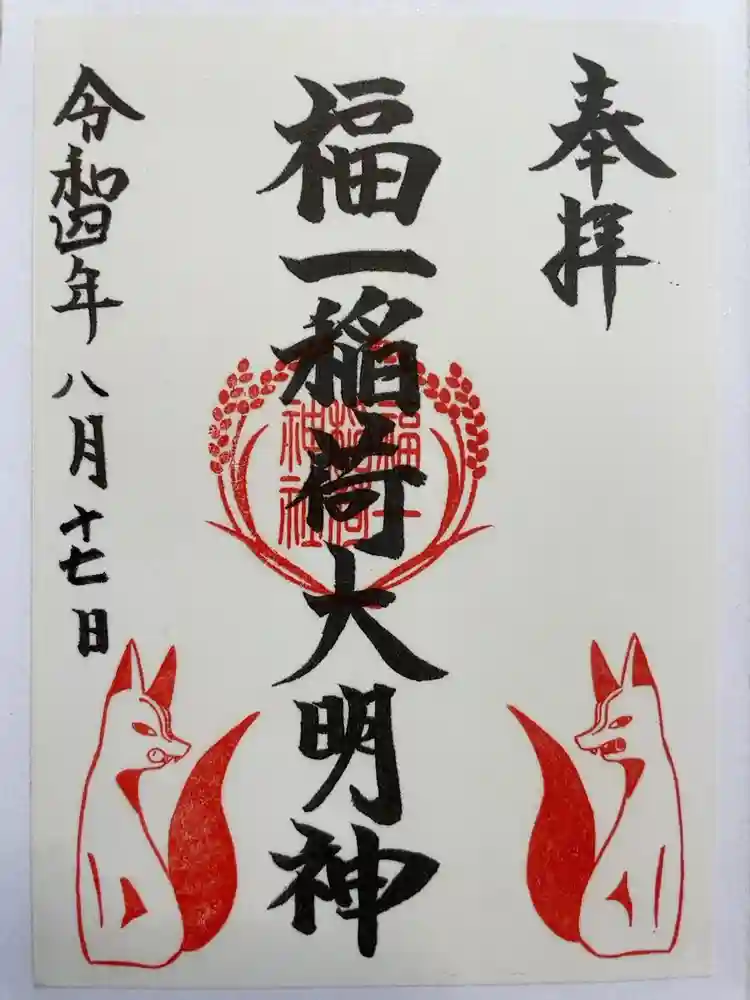 奉拝
福一稲荷大明神
福一
稲荷
神社
令和四年八月十七日